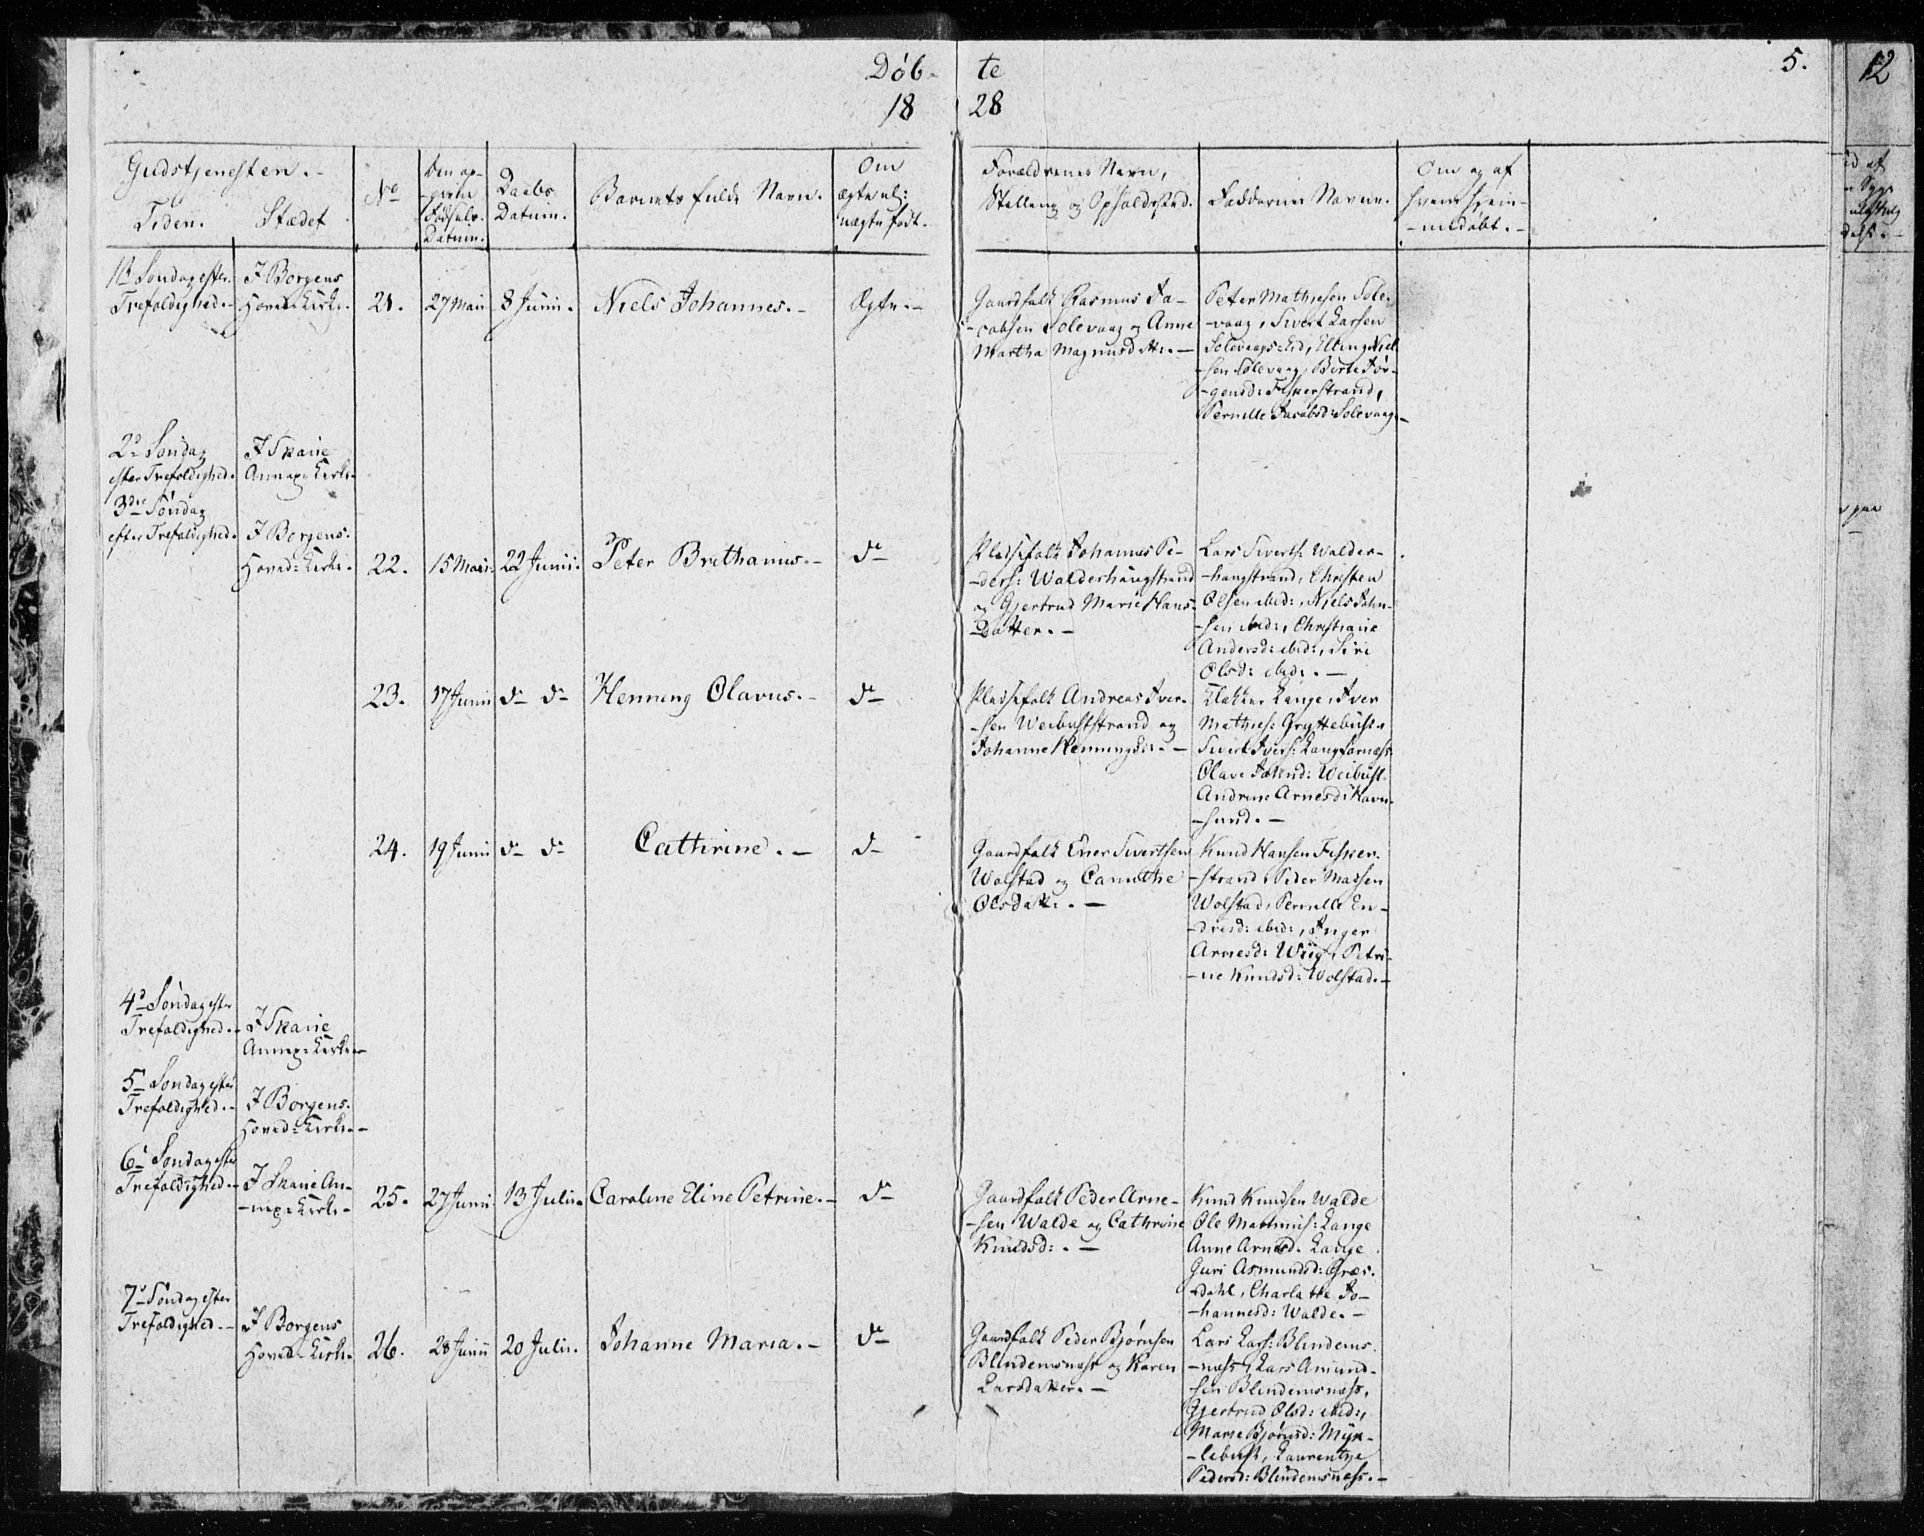 Døb-te
5.
12
18 28
Gudstjenesten.-
Tiden. Stædet
No
Den op-
givne
Fødsels-
Datum.
Daabs
Datum.
Barnets fulde Navn.
Om
ægte el:
uægte født.
Forældrenes Navn,
Stilling og Opholdsted.
Faddernes Navne.
Om og af
hvem hjem-
-medøbt.-
1ste Søndag efter
Trefoldighed.-
I Borgens
Hoved-Kirke.
21.
27 Mai
8 Junii.
Niels Johannes.-
Ægte.-
Gaardfolk Rasmus Ja-
-cobsen Solevaag og Anne
Martha Magnusdtt:.-
Peter Mathiesen Sole-
-vaag, Sivert Larsen
Solevaags-Eid, Elling Niel-
-sen Solevaag, Birte Jør-
-gensd: Fiskerstrand,
Pernille Jacobsd: Solevaag.-
2d Søndag
efter Trefoldighed.
I Skarie
Annex-Kirke.
3die Søndag
efter Trefoldighed.
I Borgens:
Hoved-Kirke.
22.
15 Mai.
22 Junii.
Peter Brithanus.-
do
Pladsefolk Johannes Pe-
-ders: Walderhaugstrand
og Gjertrud Marie Hans-
Datter.-
Lars Siverts: Walder-
-haugstrand, Christen
Olsen ibid:, Niels John-
-sen ibid:, Christiane
Andersd: ibid:, Siri
Olsd: ibid:.-
23.
17 Junii
do do
Henning Olavus.-
do
Pladsefolk Andreas Iver-
-sen Weibuststrand og
Johanne Henningsd:.-
Klokker Lange, Iver
Mathies: Gryttebust
Sivert Ivers: Langskarnæss
Olave Johnd: Weibust.
Andrine Arnesd: Havn-
-sund.-
24.
19 Junii
do do
Cathrine.-
do
Gaardfolk Einer Sivertsen
Wolstad og Canuthe
Olsdatt:.-
Knud Hansen Fisker-
-strand, Peder Madsen
Wolstad, Pernille En-
-dresd: ibid:, Inger
Arnesd: Wiig, Petri-
-ne Knudsd: Wolstad.-
4d Søndag efter
Trefoldighed.-
I Skarie
Annex-Kirke-
5te Søndag efter
Trefoldighed.-
I Borgens.
Hoved-Kirke.-
6te Søndag efter
Trefoldighed.-
I Skarie An-
-nex-Kirke-
25.
27 Junii.
13 Julii.
Caroline Eline Petrine.-
do
Gaardfolk Peder Arne-
-sen Walde og Cathrine
Knudsd:.-
Knud Knudsen Walde
Ole Martinus: Lange
Anne Arnesd. Lange
Guri Asmundsd: Græs-
-dahl, Charlotte Jo-
-hannesd: Walde.-
7de Søndag efter
Trefoldighed.-
I Borgens
Hoved-Kirke.
26.
28 Junii
20 Julii.
Johanne Maria.-
do
Gaardfolk Peder Bjørnsen
Blindemsnæss og Karen
Larsdatter.-
Lars Lars: Blindems-
-næss, Lars Amund-
-sen Blindemsnæss,
Gjertrud Olsd: ibid:,
Marie Bjørnsd: Myk-
-lebust, Laurentze
Pedersd: Blindemsnæss.-